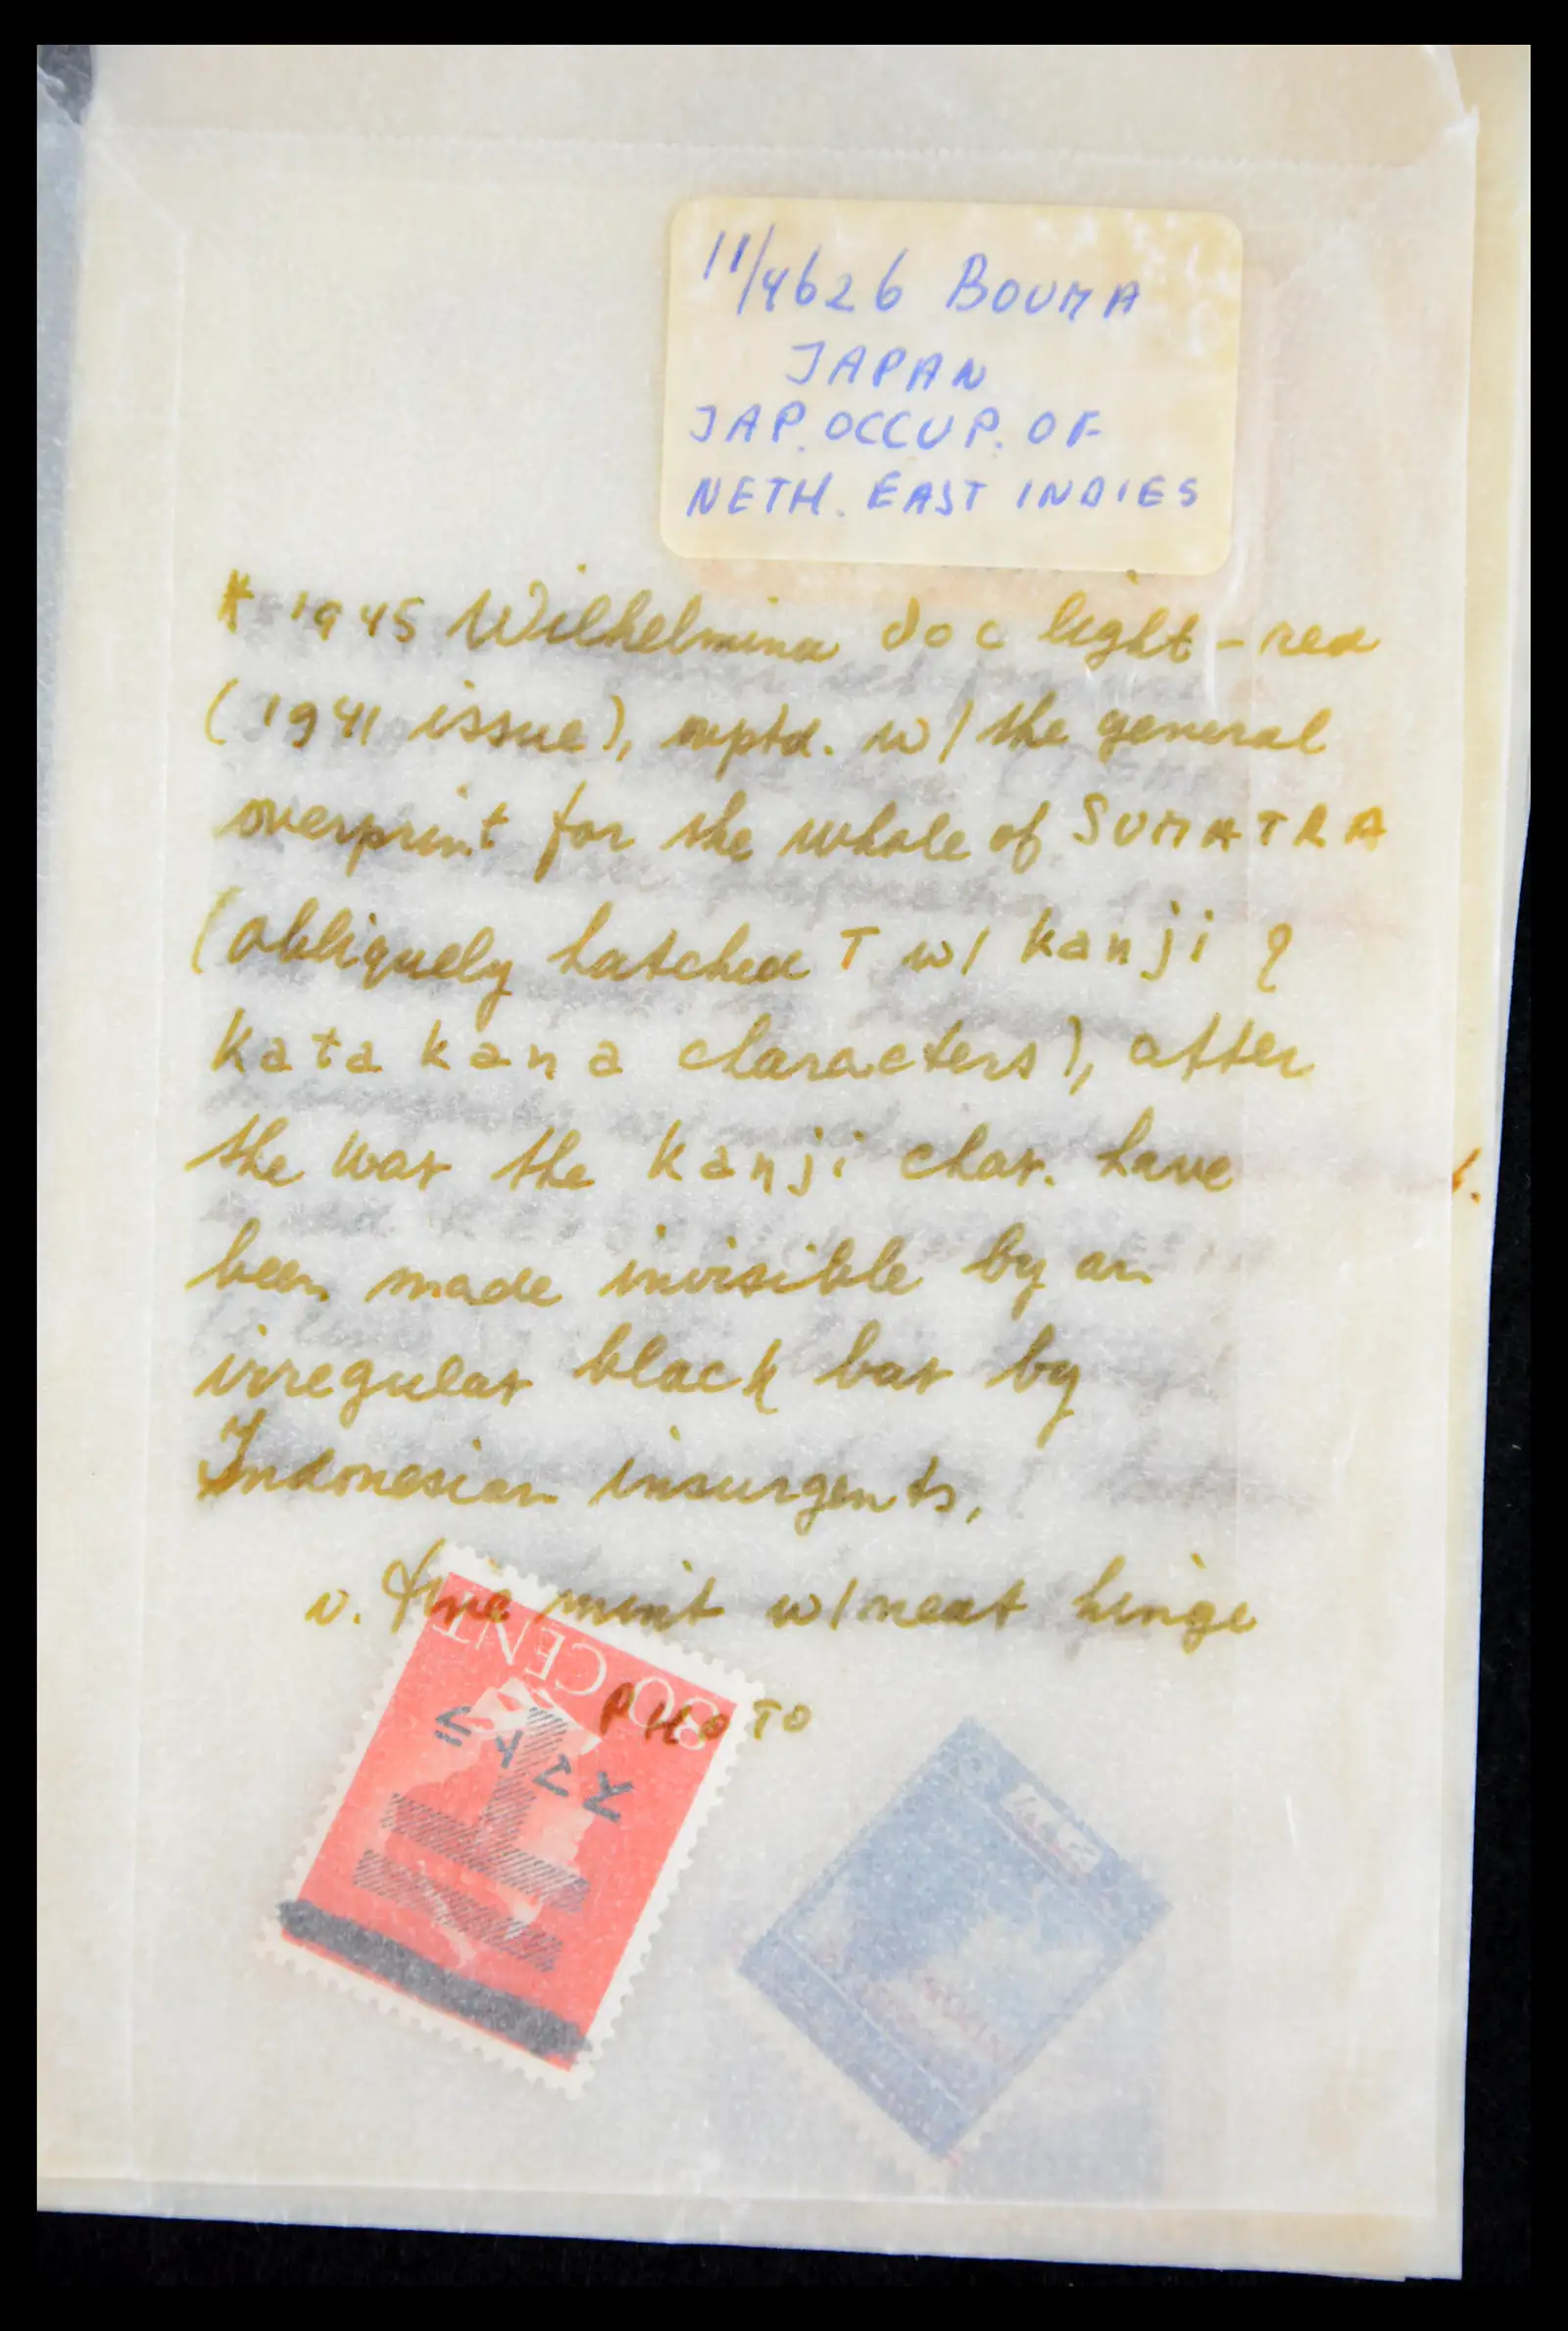 11/4626 BOUMA
JAPAN
JAP. OCCUP. OF
NETH. EAST INDIES
* 1945 Wilhelmina 80c light-red
(1941 issue), ovptd. w/ the general
overprint for the whole of SUMATRA
(obliquely hatched T w/ kanji &
katakana characters), after
the war the kanji char. have
been made invisible by an
irregular black bar by
Indonesian insurgents,
v. fine mint w/neat hinge
PHOTO
80 CENT
スマトラ